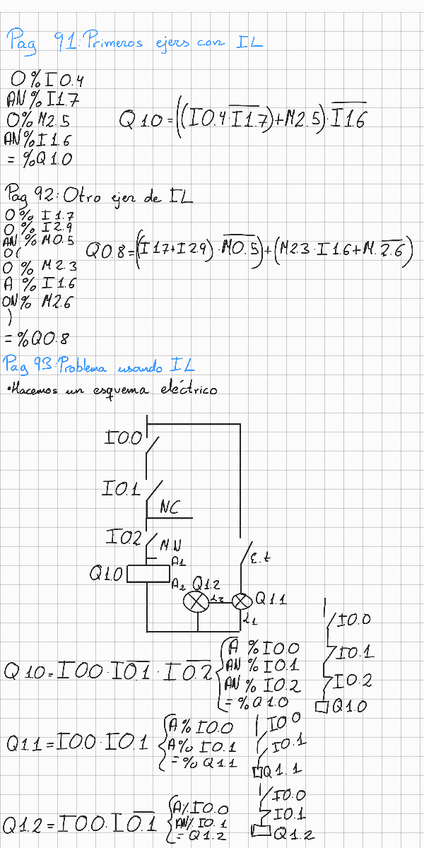 Pag 91: Primeros ejers con IL
O %I0.4
AN %I1.7
O %M2.5
AN %I1.6
= %Q1.0
Q1.0=((I0.4 I̅1̅.̅7̅)+M2.5) I̅1̅6̅
Pag 92: Otro ejer de IL
O % I1.7
O % I2.9
AN % M0.5
O(
O % M2.3
A % I1.6
ON % M2.6
)
= %Q0.8
Q0.8=((I17+I29) · M̅0̅.̅5̅)+(M23·I1.6+M.2̅.̅6̅)
Pag 93: Problema usando IL
•Hacemos un esquema eléctrico
I0.0
I0.1
NC
I0.2
N.N
A1
Q1.0
A2
Q1.2
L2
E.t
Q1.1
L1
Q1.0=I0.0·I̅0̅.̅1̅·I̅0̅.̅2̅
A %I0.0
AN %I0.1
AN %I0.2
= %Q1.0
I0.0
I0.1
I0.2
Q1.0
Q1.1=I0.0·I0.1
A% I0.0
A% I0.1
=% Q1.1
I0.0
I0.1
Q1.1
Q1.2=I0.0·I̅0̅.̅1̅
A% I0.0
AN% I0.1
= Q1.2
I0.0
I0.1
Q1.2